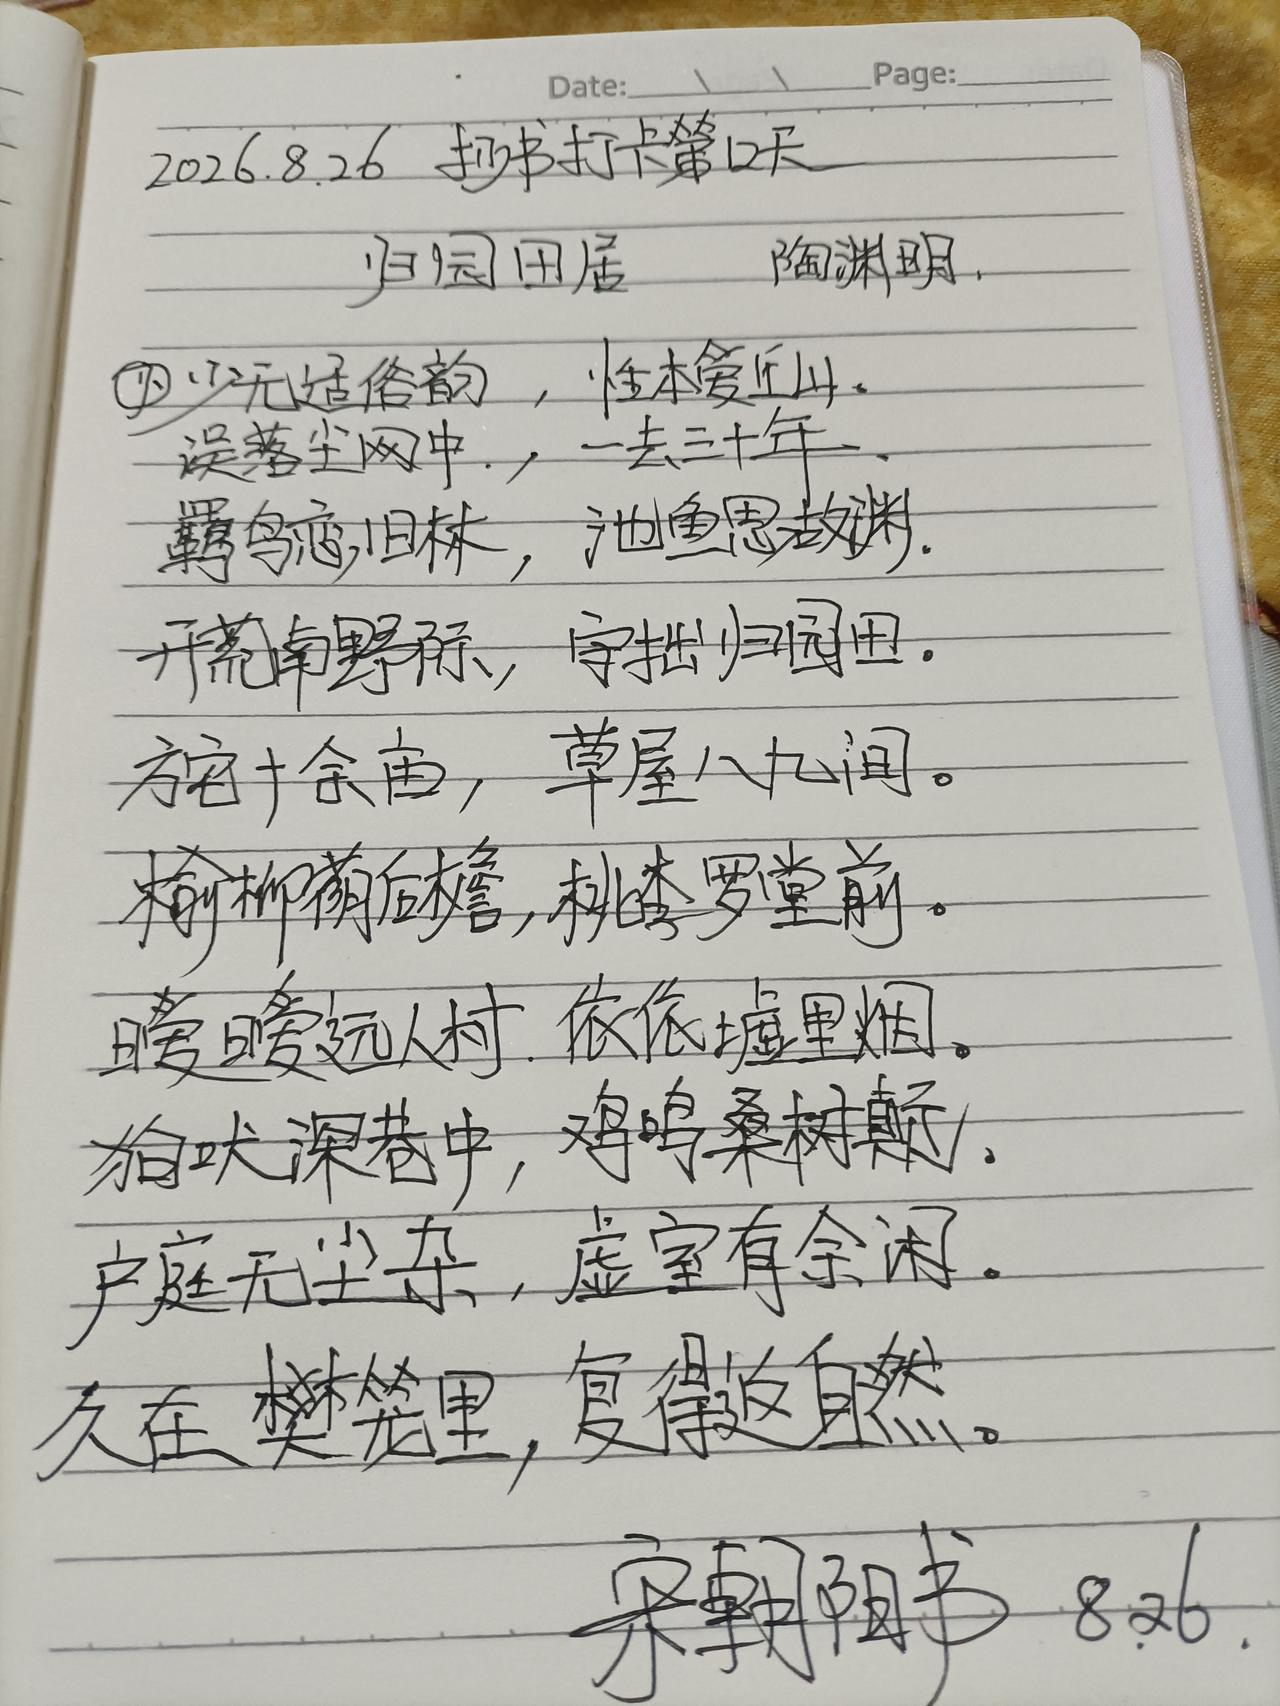 Date: \ \ Page:
2026.8.26 抄书打卡第12天
归园田居 陶渊明.
少无适俗韵，性本爱丘山.
误落尘网中.，一去三十年、
羁鸟恋旧林，池鱼思故渊.
开荒南野际，守拙归园田.
方宅十余亩，草屋八九间。
榆柳荫后檐，桃李罗堂前。
暧暧远人村.依依墟里烟。
狗吠深巷中，鸡鸣桑树颠.
户庭无尘杂，虚室有余闲。
久在樊笼里，复得返自然。
宋朝阳书 8.26.